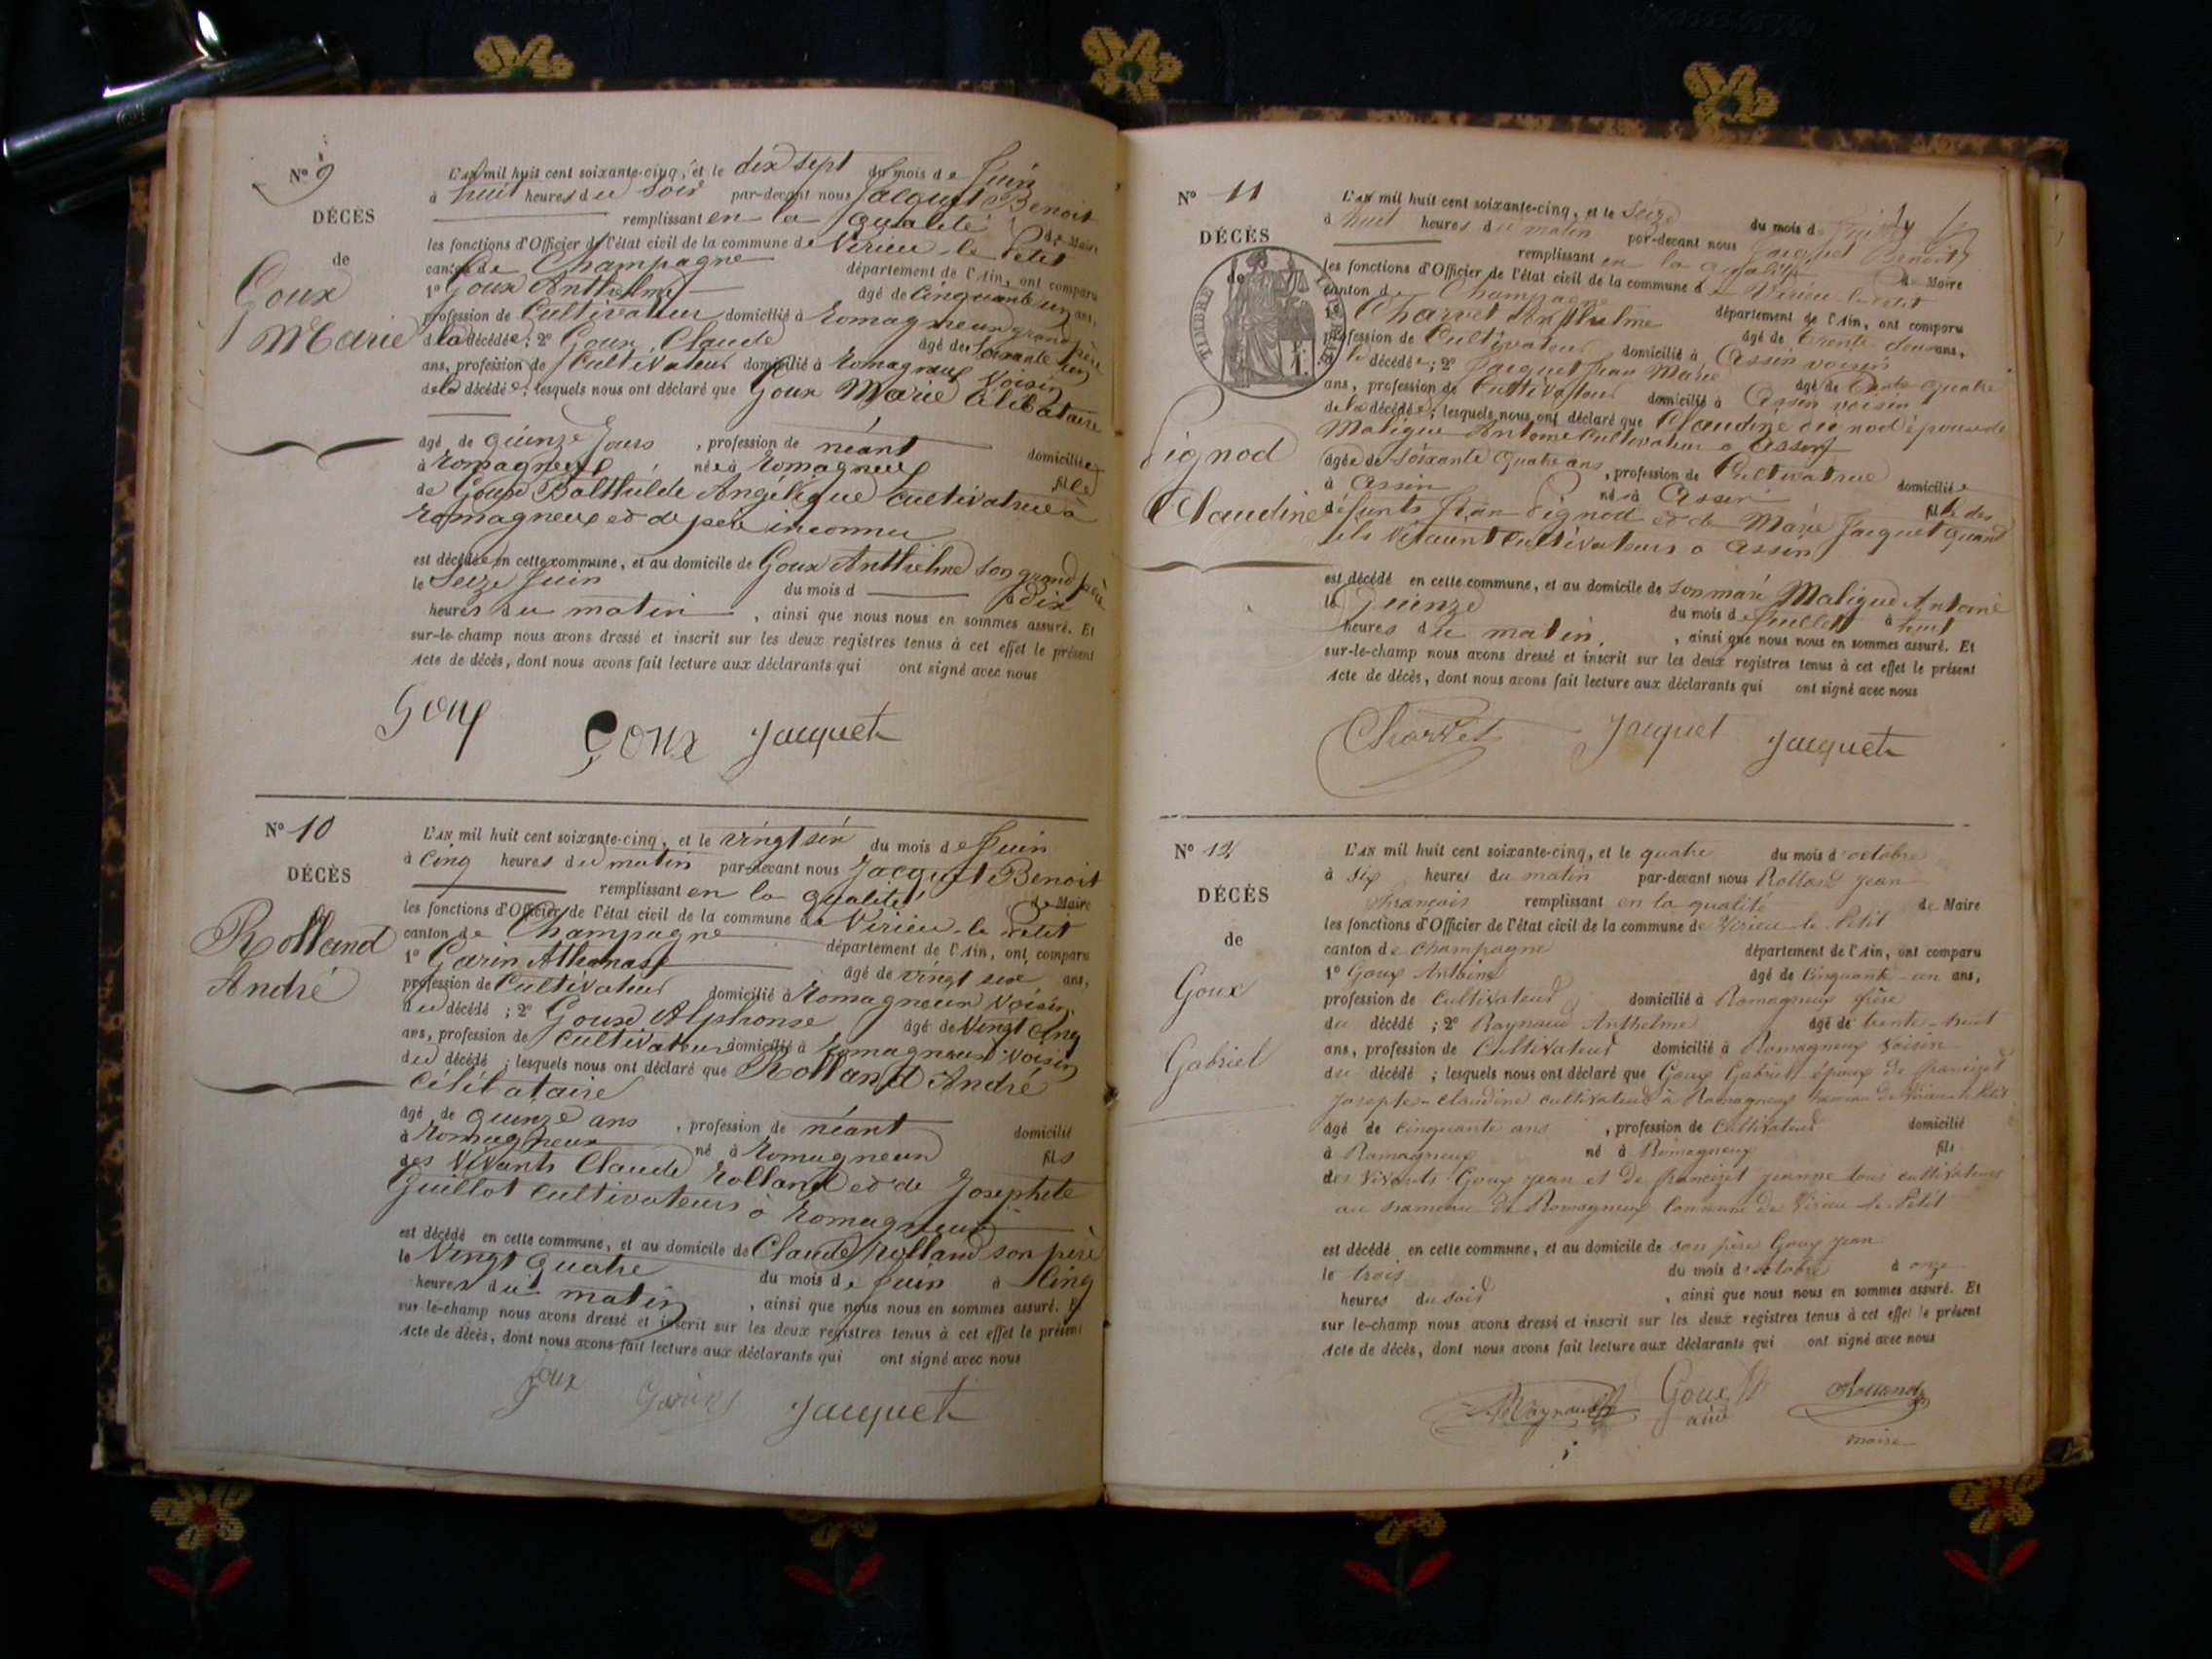 N° 9
DÉCÈS
de
Goux
Marie
L'AN mil huit cent soixante-cinq, et le dix sept du mois de Juin
à huit heures du soir par-devant nous Jacquet Benoit
remplissant en la qualité de Maire
les fonctions d'Officier de l'état civil de la commune de Virieu-le-Petit
canton de Champagne département de l'Ain, ont comparu
1° Goux Anthelme âgé de Cinquante un ans,
profession de Cultivateur domicilié à Romagneux grand père
de la décédée; 2° Goux Claude âgé de Soixante
ans, profession de Cultivateur domicilié à Romagneux Voisin
de la décédée; lesquels nous ont déclaré que Goux Marie Célibataire
âgé de quinze Jours, profession de néant domiciliée
à Romagneux née à Romagneux fille
de Goux Bathilde Angélique Cultivatrice à
Romagneux et de père inconnu
est décédée en cette commune, et au domicile de Goux Anthelme son grand père
le Seize Juin du mois d à dix
heures du matin, ainsi que nous nous en sommes assuré. Et
sur-le-champ nous avons dressé et inscrit sur les deux registres tenus à cet effet le présent
Acte de décès, dont nous avons fait lecture aux déclarants qui ont signé avec nous
Goux Goux Jacquet
N° 10
DÉCÈS
de
Rolland
André
L'AN mil huit cent soixante-cinq, et le vingt six du mois de Juin
à cinq heures du matin par-devant nous Jacquet Benoit
remplissant en la qualité de Maire
les fonctions d'Officier de l'état civil de la commune de Virieu-le-Petit
canton de Champagne département de l'Ain, ont comparu
1° Garin Athanase âgé de vingt six ans,
profession de Cultivateur domicilié à Romagneux Voisin
du décédé; 2° Goux Alphonse âgé de Vingt Cinq
ans, profession de Cultivateur domicilié à Romagneux Voisin
du décédé; lesquels nous ont déclaré que Rolland André
Célibataire
âgé de quinze ans, profession de néant domicilié
à Romagneux né à Romagneux fils
des Vivants Claude Rolland et de Josephete
Guillot Cultivateurs à Romagneux
est décédé en cette commune, et au domicile de Claude Rolland son père
le Vingt Quatre du mois de Juin à Cinq
heures du matin, ainsi que nous nous en sommes assuré. Et
sur-le-champ nous avons dressé et inscrit sur les deux registres tenus à cet effet le présent
Acte de décès, dont nous avons fait lecture aux déclarants qui ont signé avec nous
Goux Garin Jacquet
N° 11
DÉCÈS
de
TIMBRE
Dignod
Claudine
L'AN mil huit cent soixante-cinq, et le Seize du mois de Juillet
à huit heures du matin par-devant nous Jacquet Benoit
remplissant en la qualité de Maire
les fonctions d'Officier de l'état civil de la commune de Virieu-le-Petit
canton de Champagne département de l'Ain, ont comparu
1° Charvet Anthelme âgé de Trente deux ans,
profession de Cultivateur domicilié à Assin voisin
de la décédée; 2° Jacquet Jean Marie âgé de Trente quatre
ans, profession de Cultivateur domicilié à Assin voisin
de la décédée; lesquels nous ont déclaré que Claudine Dignod épouse de
Maligue Antoine Cultivateur à Assin
âgée de Soixante quatre ans, profession de Cultivatrice domiciliée
à Assin née à Assin fille des
défunts Jean Dignod et de Marie Jacquet quand
ils vivaient Cultivateurs à Assin
est décédé en cette commune, et au domicile de son mari Maligue Antoine
le Quinze du mois de Juillet à huit
heures du matin, ainsi que nous nous en sommes assuré. Et
sur-le-champ nous avons dressé et inscrit sur les deux registres tenus à cet effet le présent
Acte de décès, dont nous avons fait lecture aux déclarants qui ont signé avec nous
Charvet Jacquet Jacquet
N° 12
DÉCÈS
de
Goux
Gabriel
L'AN mil huit cent soixante-cinq, et le quatre du mois d'octobre
à six heures du matin par-devant nous Rolland Jean
François remplissant en la qualité de Maire
les fonctions d'Officier de l'état civil de la commune de Virieu-le-Petit
canton de Champagne département de l'Ain, ont comparu
1° Goux Antoine âgé de Cinquante-un ans,
profession de Cultivateur domicilié à Romagneux frère
du décédé; 2° Raynaud Anthelme âgé de trente-huit
ans, profession de Cultivateur domicilié à Romagneux voisin
du décédé; lesquels nous ont déclaré que Goux Gabriel époux de Francizet
Josephte-Claudine cultivateur à Romagneux hameau de Virieu-le-Petit
âgé de Cinquante ans, profession de Cultivateur domicilié
à Romagneux né à Romagneux fils
des Vivants Goux Jean et de Francizet Jeanne tous cultivateurs
au hameau de Romagneux Commune de Virieu-le-Petit
est décédé en cette commune, et au domicile de son père Goux Jean
le trois du mois d'octobre à onze
heures du soir, ainsi que nous nous en sommes assuré. Et
sur le-champ nous avons dressé et inscrit sur les deux registres tenus à cet effet le présent
Acte de décès, dont nous avons fait lecture aux déclarants qui ont signé avec nous
Raynaud Goux Rolland
ainé
maire